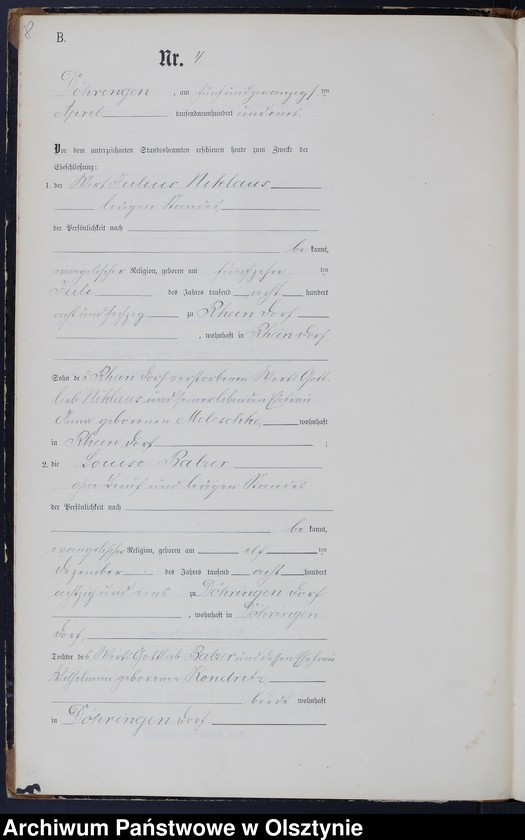 8
B.
Nr. 4
Döhringen, am fünfundzwanzigsten
April tausendneunhundert und eins.
Vor dem unterzeichneten Standesbeamten erschienen heute zum Zwecke der
Eheschließung:
1. der Wirt Julius Niklaus,
ledigen Standes,
der Persönlichkeit nach
be kannt,
evangelischer Religion, geboren am fünfzehn ten
Juli des Jahres tausend acht hundert
achtundsechzig zu Rhein Dorf
, wohnhaft in Rhein Dorf,
Sohn des Rhein Dorf verstorbenen Wirts Gott-
lieb Niklaus und seiner lebenden Ehefrau
Anna geborenen wohnhaft
in Rhein Dorf ;
2. die Louise Balzer
ohne Beruf und ledigen Standes
der Persönlichkeit nach
be kannt,
evangelischer Religion, geboren am elf ten
Dezember des Jahres tausend acht hundert
achtzig und eins zu Döhringen Dorf
, wohnhaft in Döhringen
Dorf,
Tochter des Wirts Gottlieb Balzer und dessen Ehefrau
Wilhelmine geborenen
beide wohnhaft
in Döhringen Dorf.
Archiwum Państwowe w Olsztynie